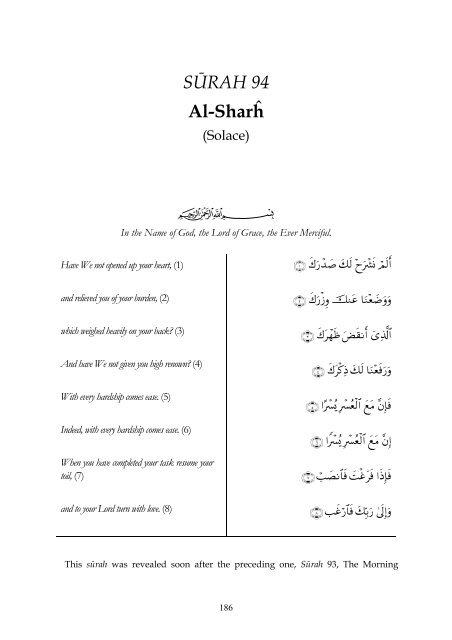 SŪRAH 94
Al-Sharĥ
(Solace)
بِسْمِ اللَّهِ الرَّحْمَٰنِ الرَّحِيمِ
In the Name of God, the Lord of Grace, the Ever Merciful.
Have We not opened up your heart, (1)
أَلَمْ نَشْرَحْ لَكَ صَدْرَكَ ۝١
and relieved you of your burden, (2)
وَوَضَعْنَا عَنكَ وِزْرَكَ ۝٢
which weighed heavily on your back? (3)
ٱلَّذِىٓ أَنقَضَ ظَهْرَكَ ۝٣
And have We not given you high renown? (4)
وَرَفَعْنَا لَكَ ذِكْرَكَ ۝٤
With every hardship comes ease. (5)
فَإِنَّ مَعَ ٱلْعُسْرِ يُسْرًا ۝٥
Indeed, with every hardship comes ease. (6)
إِنَّ مَعَ ٱلْعُسْرِ يُسْرًا ۝٦
When you have completed your task resume your
toil, (7)
فَإِذَا فَرَغْتَ فَٱنصَبْ ۝٧
and to your Lord turn with love. (8)
وَإِلَىٰ رَبِّكَ فَٱرْغَب ۝٨
This sūrah was revealed soon after the preceding one, Sūrah 93, The Morning
186